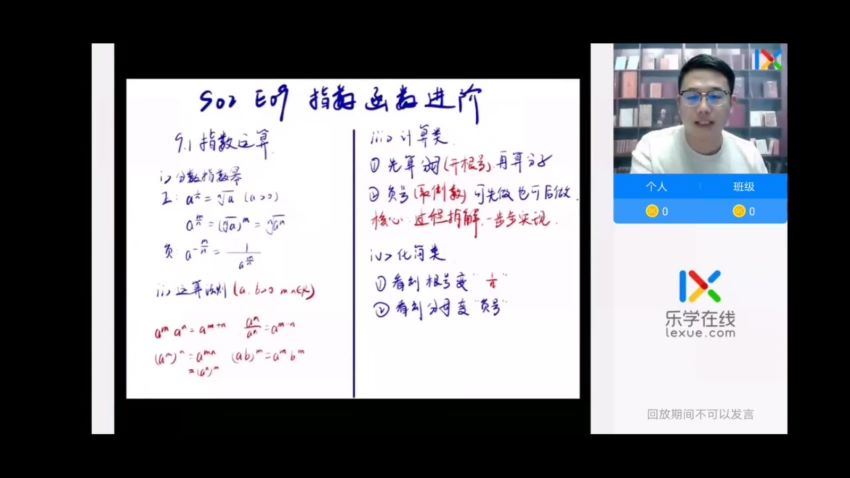 S02 E09 指数函数进阶
9.1 指数运算
i> 分数指数幂
正: a^{1/n} = ⁿ√a (a>0)
a^{m/n} = (ⁿ√a)^m = ⁿ√a^m
负 a^{-m/n} = 1/a^{m/n}
ii> 运算法则 (a.b>0 m.n∈R)
a^m a^n = a^{m+n} a^m/a^n = a^{m-n}
(a^m)^n = a^{mn} (ab)^m = a^m b^m
= (a^n)^m
iii> 计算类
① 先算分母(开根号) 再算分子
② 负号(取倒数) 可先做也可后做.
核心 过程拆解.一步步实现.
iv> 化简类
① 看到根号变 "1/n"
② 看到分母变"负号"
个人 班级
0 0
乐学在线
lexue.com
回放期间不可以发言